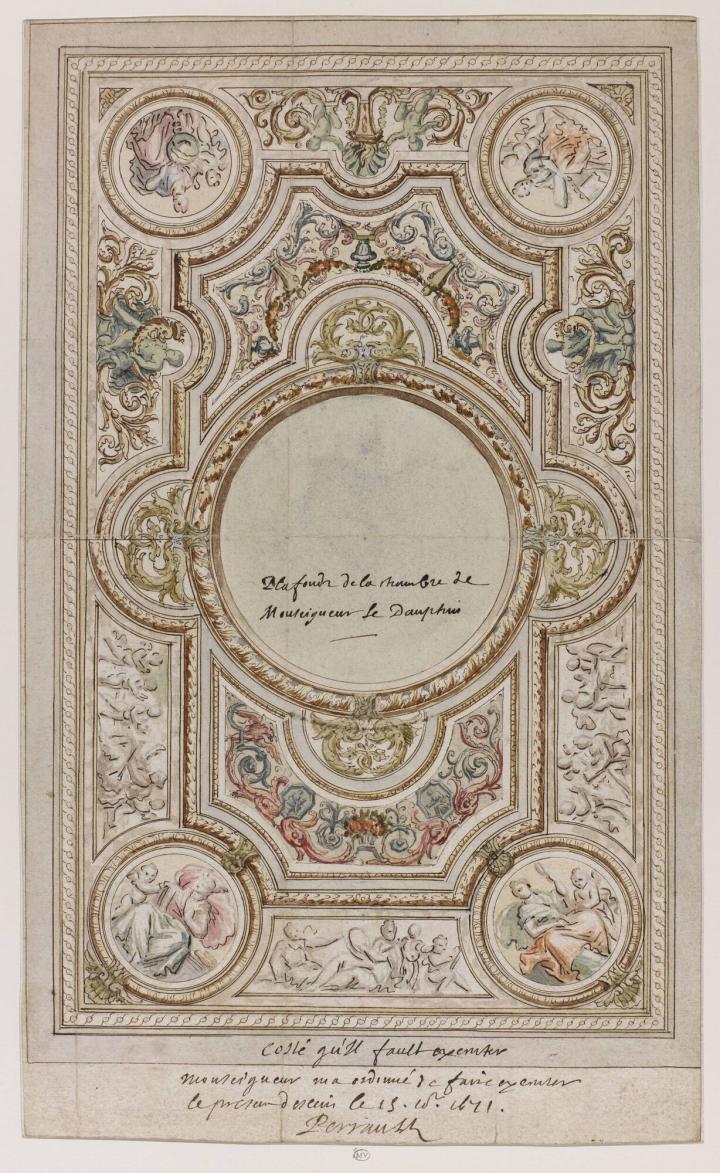 Plafondz de la chambre de
Monseigneur Le Dauphin
Costé qu'il fault executer
Monseigneur m'a ordonné de faire executer
le present dessein le 15. 10e. 1671.
Perrault
MV